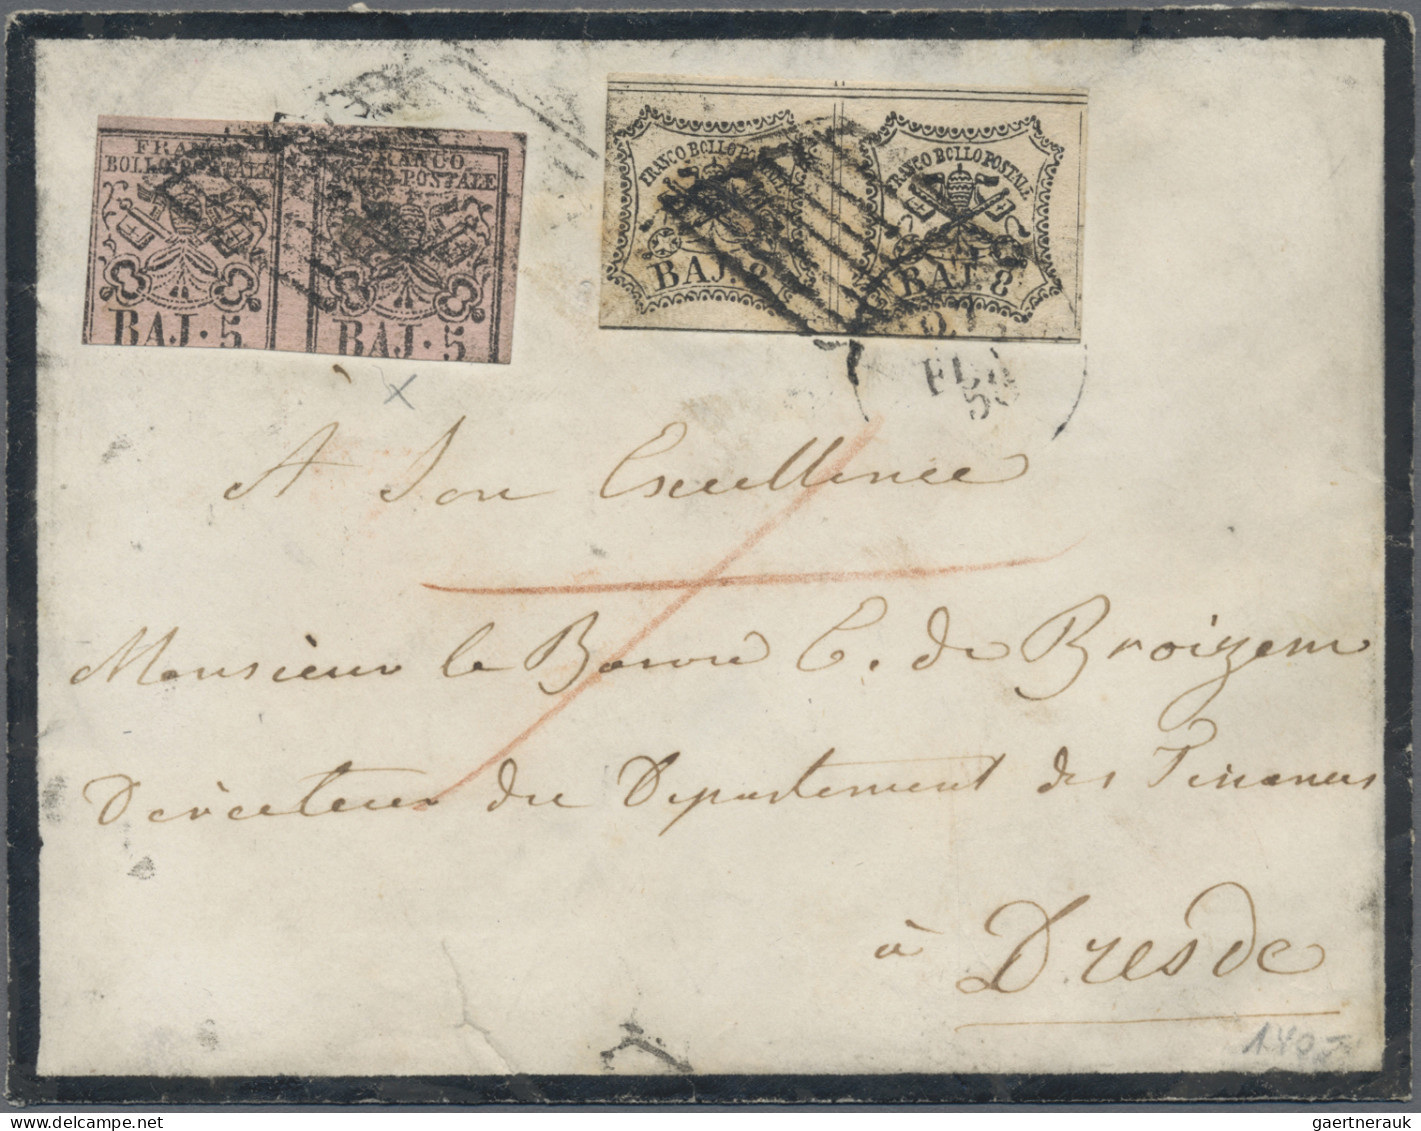 FRANCO
BOLLO POSTALE
BAJ. 5
FRANCO
BOLLO POSTALE
BAJ. 5
FRANCO BOLLO POSTALE
BAJ. 8
FRANCO BOLLO POSTALE
BAJ. 8
A Son Excellence
Monsieur le Baron C. de Broizem
Directeur du Departement des Finances
à Dresde
gaertnerauk